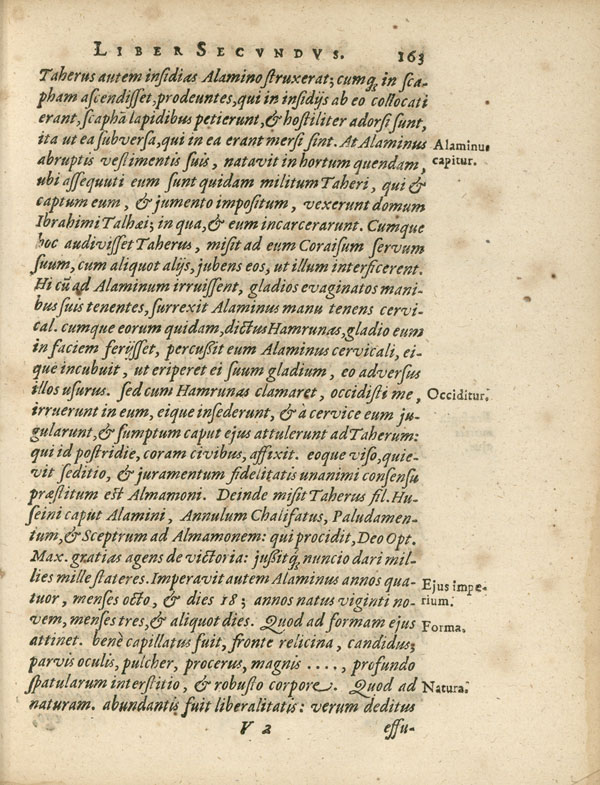 LIBER SECVNDVS. 163
Taherus autem insidias Alamino struxerat; cumq́; in sca-
pham ascendisset, prodeuntes, qui in insidijs ab eo collocati
erant, scaphā lapidibus petierunt, & hostiliter adorsi sunt,
ita ut ea subversa, qui in ea erant mersi sint. At Alaminus
Alaminus
abruptis vestimentis suis, natavit in hortum quendam,
capitur.
ubi assequuti eum sunt quidam militum Taheri, qui &
captum eum, & jumento impositum, vexerunt domum
Ibrahimi Talhæi; in qua, & eum incarcerarunt. Cumque
hoc audivisset Taherus, misit ad eum Coraisum servum
suum, cum aliquot alijs, jubens eos, ut illum interficerent.
Hi cū ad Alaminum irruissent, gladios evaginatos mani-
bus suis tenentes, surrexit Alaminus manu tenens cervi-
cal. cumque eorum quidam, dictus Hamrunas, gladio eum
in faciem ferijsset, percußit eum Alaminus cervicali, ei-
que incubuit, ut eriperet ei suum gladium, eo adversus
illos usurus. sed cum Hamrunas clamaret, occidisti me,
Occiditur.
irruerunt in eum, eique insederunt, & a cervice eum ju-
gularunt, & sumptum caput ejus attulerunt ad Taherum:
qui id postridie, coram civibus, affixit. eoque viso, quie-
vit seditio, & juramentum fidelitatis unanimi consensu
præstitum est Almamoni. Deinde misit Taherus fil. Hu-
seini caput Alamini, Annulum Chalifatus, Paludamen-
tium, & Sceptrum ad Almamonem: qui procidit, Deo Opt.
Max. gratias agens de victoria: jußitq́; nuncio dari mil-
lies mille stateres. Imperavit autem Alaminus annos qua-
Ejus impe-
tuor, menses octo, & dies 18; annos natus viginti no-
rium.
vem, menses tres, & aliquot dies. Quod ad formam ejus
Forma.
attinet. benè capillatus fuit, fronte relicina, candidus;
parvis oculis, pulcher, procerus, magnis ...., profundo
spatularum interstitio, & robusto corpore. Quod ad
Natura.
naturam. abundantis fuit liberalitatis: verum deditus
V 2 effu-